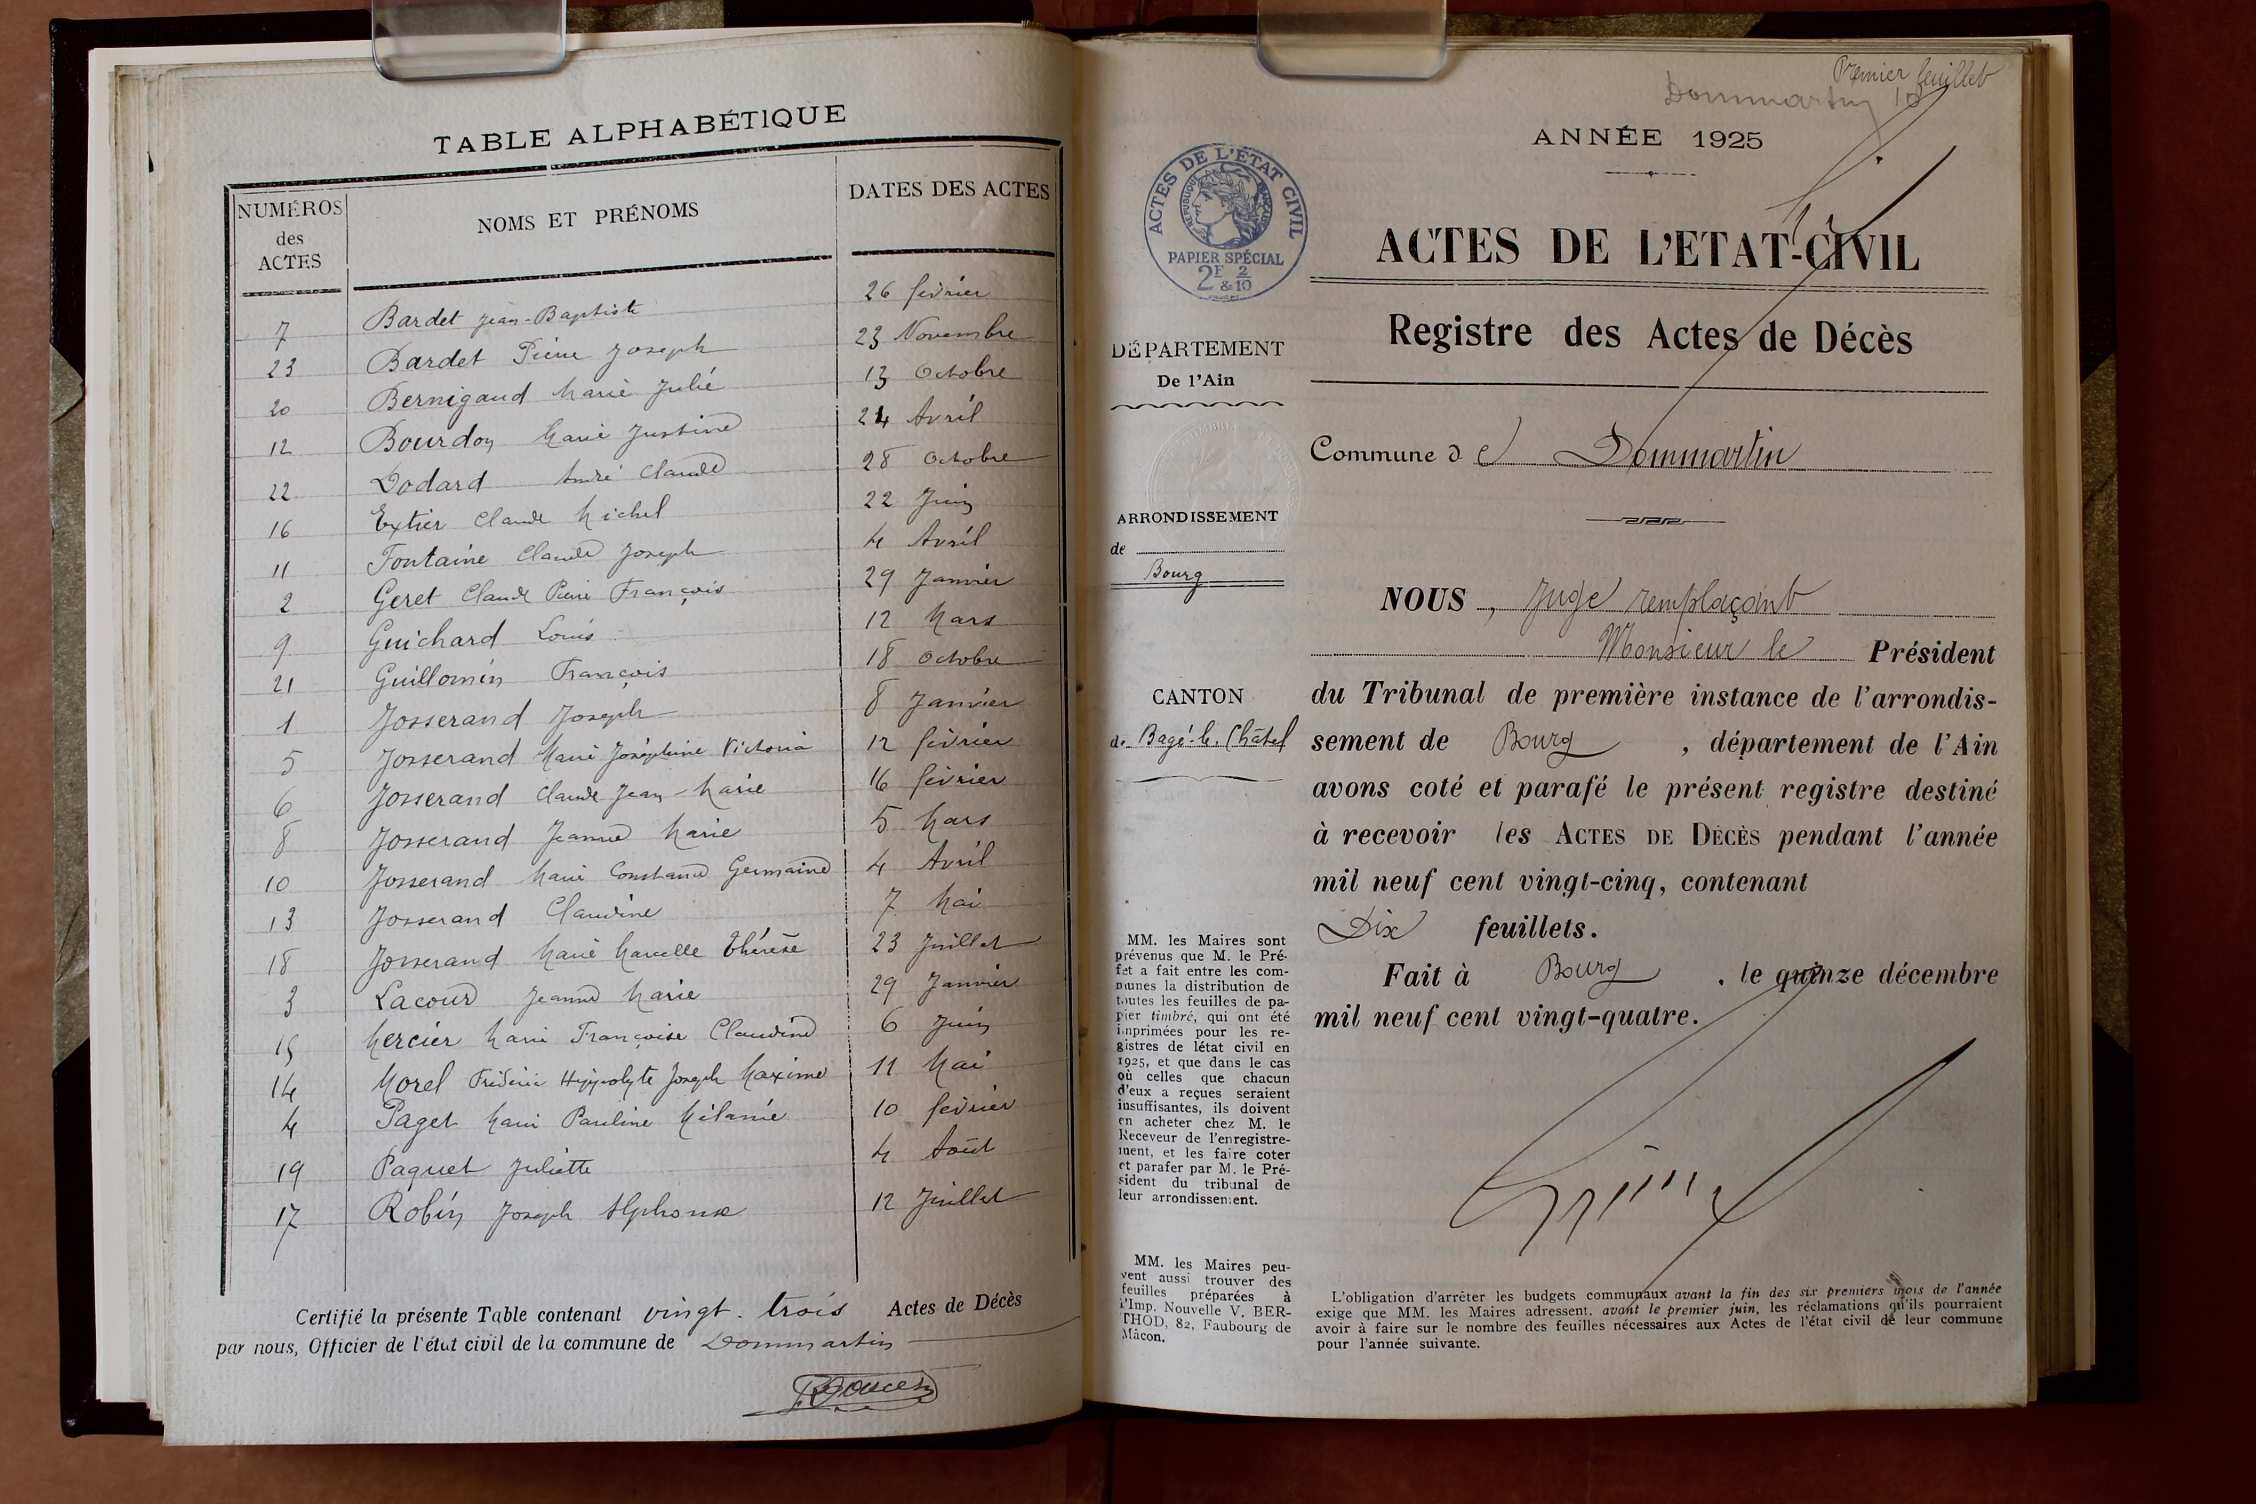 TABLE ALPHABÉTIQUE
NUMÉROS des ACTES NOMS ET PRÉNOMS DATES DES ACTES
7 Bardet Jean-Baptiste 26 février
23 Bardet Pierre Joseph 23 Novembre
20 Bernigaud Marie Julie 13 Octobre
12 Bourdon Marie Justine 24 Avril
22 Dodard André Claude 28 Octobre
16 Extier Claude Michel 22 Juin
11 Fontaine Claude Joseph 4 Avril
2 Geret Claude Pierre François 29 Janvier
9 Guichard Louis 12 Mars
21 Guillomin François 18 Octobre
1 Josserand Joseph 8 Janvier
5 Josserand Marie Joséphine Victoria 12 février
6 Josserand Claude Jean-Marie 16 février
8 Josserand Jeanne Marie 5 Mars
10 Josserand Marie Constance Germaine 4 Avril
13 Josserand Claudine 7 Mai
18 Josserand Marie Marcelle Thérèse 23 Juillet
3 Lacour Jeanne Marie 29 Janvier
15 Mercier Marie Françoise Claudine 6 Juin
14 Morel Frédéric Hyppolyte Joseph Maxime 11 Mai
4 Paget Marie Pauline Mélanie 10 février
19 Paquet Juliette 4 Août
17 Robin Joseph Alphonse 12 Juillet
Certifié la présente Table contenant vingt-trois Actes de Décès
par nous, Officier de l'état civil de la commune de Dommartin
Premier feuillet
Dommartin 10
ANNÉE 1925
ACTES DE L'ÉTAT CIVIL
RÉPUBLIQUE FRANÇAISE
PAPIER SPÉCIAL
2F 2/10
&
ACTES DE L'ETAT-CIVIL
Registre des Actes de Décès
DÉPARTEMENT
De l'Ain
Commune de Dommartin
ARRONDISSEMENT
de
Bourg
CANTON
de Bagé-le-Châtel
NOUS, Juge remplaçant
Monsieur le Président
du Tribunal de première instance de l'arrondis-
sement de Bourg, département de l'Ain
avons coté et parafé le présent registre destiné
à recevoir les ACTES DE DÉCÈS pendant l'année
mil neuf cent vingt-cinq, contenant
Dix feuillets.
Fait à Bourg, le quinze décembre
mil neuf cent vingt-quatre.
MM. les Maires sont
prévenus que M. le Pré-
fet a fait entre les com-
munes la distribution de
toutes les feuilles de pa-
pier timbré, qui ont été
imprimées pour les re-
gistres de létat civil en
1925, et que dans le cas
où celles que chacun
d'eux a reçues seraient
insuffisantes, ils doivent
en acheter chez M. le
Receveur de l'enregistre-
ment, et les faire coter
et parafer par M. le Pré-
sident du tribunal de
leur arrondissement.
MM. les Maires peu-
vent aussi trouver des
feuilles préparées à
l'Imp. Nouvelle V. BER-
THOD, 82, Faubourg de
Mâcon.
L'obligation d'arrêter les budgets communaux avant la fin des six premiers mois de l'année
exige que MM. les Maires adressent, avant le premier juin, les réclamations qu'ils pourraient
avoir à faire sur le nombre des feuilles nécessaires aux Actes de l'état civil de leur commune
pour l'année suivante.